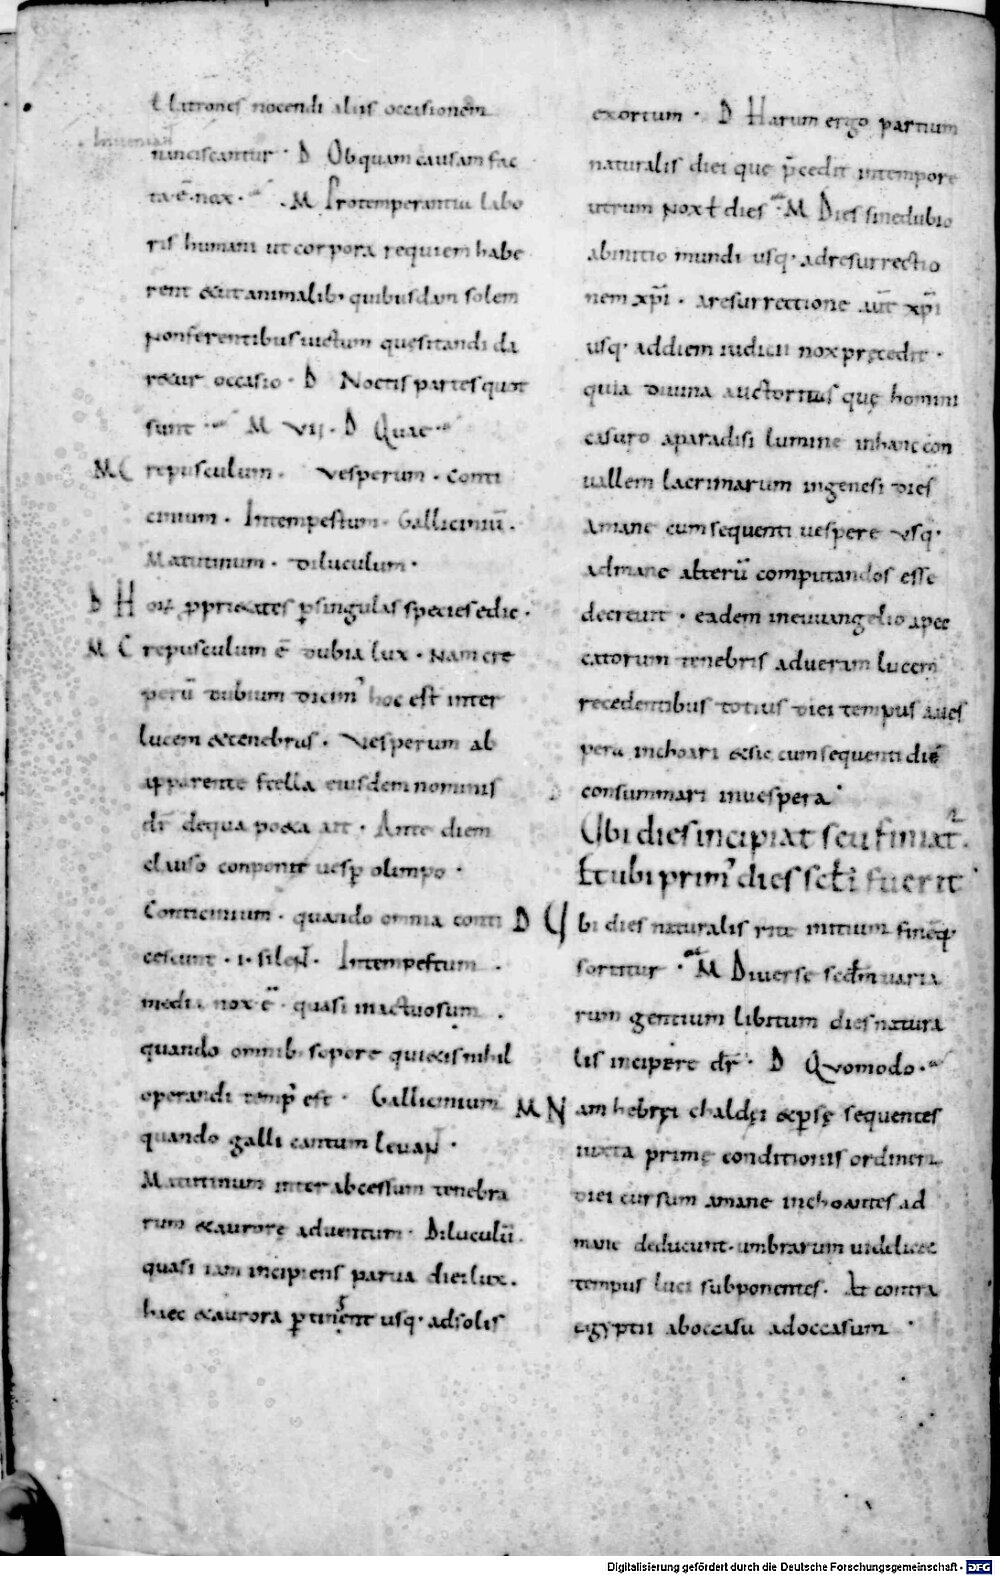 & latrones nocendi aliis occasionem
Inueniant
nanciscantur · D Ob quam causam fac
ta · ē · nox · M Pro temperantia labo
ris humani ut corpora requiem habe
rent & ut animalib; quibusdam solem
non ferentibus uictum quesitandi da
r&ur occasio · D Noctis partes quot
sunt M VII · D Quae
M C repusculum · Vesperum · Conti
cinium · Intempestum · Gallicíniū ·
Matutinum · Diluculum ·
D H oꝝ ꝓpri&ates ꝑ singulas species edic ·
M C repusculum ē dubia lux · Nam cre
perū dubium dicim' hoc est inter
lucem & tenebras · Vesperum ab
apparente stella eiusdem nominis
dr̄ de qua po&a ait · Ante diem
clauso conponit uesꝑ olimpo ·
Conticinium · quando omnia conti
cescunt · i · silent · Intempestum ·
media nox · ē · quasi inactuosum ·
quando omnib; sopore qui&is nihil
operandi temp' est · Gallicinium
quando galli cantum leuant ·
Matutinum inter abcessum tenebra
rum & aurore aduentum · Diluculū ·
quasi iam incipiens parua diei lux ·
haec & aurora ꝑtinent usq· ad solis
exortum · D Harum ergo partium
naturalis diei que p̄cedit in tempore
utrum nox ł dies M Dies sine dubio
ab initio mundi usq· ad resurrectio
nem xp̄i · a resurrectione aūt xp̄i
usq· ad diem iudicii nox pręcedit ·
quia diuina auctoritas quę homini
casuro a paradisi lumine in hanc con
uallem lacrimarum in genesi dies
a mane cum sequenti uespere usq·
ad mane alterū computandos esse
decreuit · eadem in euuangelio a pec
catorum tenebris ad ueram lucem
recedentibus totius diei tempus a ues
pera inchoari & sic cum sequenti diē
consummari in uespera ·
Ubi dies incipiat seu finiat̄ ·
Et ubi prim' dies sc̄li fuerit ·
D U bi dies naturalis rite initium finēq·
sortitur · M Diuerse scd̄m uaria
rum gentium libitum dies natura
lis incipere dr̄ · D Quomodo ·
M N am hebręi chaldęi & ꝑsę sequentes
iuxta primę conditionis ordinem
diei cursum a mane inchoantes ad
mane deducunt · umbrarum uidelic&
tempus luci subponentes · At contra
egyptii ab occasu ad occasum ·
Digitalisierung gefördert durch die Deutsche Forschungsgemeinschaft · DFG